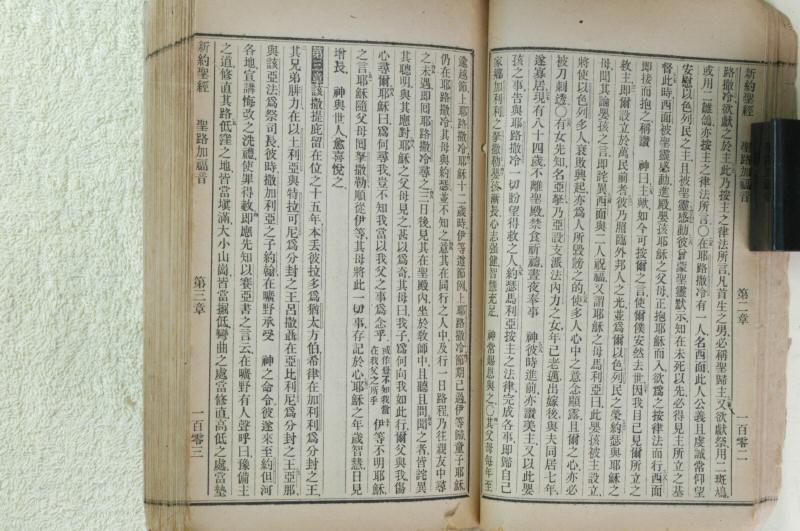 新約聖經 聖路加福音 第二章 一百零二
路撒冷欲獻之於主此乃按主之律法所言凡首生之男必稱聖歸主又欲獻祭用二斑鳩
或用二雛鴿亦按主之律法所言○在耶路撒冷有一人名西面此人公義且虔誠常仰望
安慰以色列民之主且被聖靈感動彼曾蒙聖靈默示知在未死以先必得見主所立之基
督此時西面被聖靈感動進殿嬰孩耶穌之父母正抱耶穌而入欲為之按律法而行西面
即接而抱之稱讚 神曰主歟如今可按爾之言使爾僕安然去世因我目已見爾所立之
救主即爾設立於萬民前者彼乃照臨外邦人之光並為爾以色列民之榮約瑟與耶穌之
母聞其論嬰孩之言即詫異西面與二人祝福又謂耶穌之母馬利亞曰此嬰孩被主設立
將使以色列多人衰敗興起亦為人所毀謗之的使多人心中之意念顯露且爾之心亦必
被刀刺透○有女先知名亞拿乃亞設支派法內力之女年已老邁出嫁後與夫同居七年
遂寡居現有八十四歲不離聖殿禁食祈禱晝夜奉事 神彼時進前亦讚美主又以此嬰
孩之事告與耶路撒冷一切盼望得救之人約瑟馬利亞按主之法律完成各事即歸自己
家鄉加利利之拿撒勒嬰孩漸長心志強健智慧充足 神常賜恩與之○其父母每年至
逾越節上耶路撒冷耶穌十二歲時伊等遵節例上耶路撒冷節期已過伊等歸童子耶穌
仍在耶路撒冷其母與約瑟並不知之意其在同行之人中及行一日路程乃往親友中尋
之未遇即回耶路撒冷尋之三日後見其在聖殿內坐於教師中且聽且問聞之者皆詫異
其聰明與其應對耶穌之父母見之甚以為奇其母曰我子為何向我如此行爾父與我傷
心尋爾耶穌曰為何尋我豈不知我當以我父之事為念乎或作豈不知我當在我父之所乎伊等不明耶穌
之言耶穌隨父母回拿撒勒順從伊等其母將此一切事存記於心耶穌之年歲智慧日見
增長 神與世人愈喜悅之
第三章該撒提庇留在位之十五年本丟彼拉多為猶太方伯希律在加利利為分封之王
其兄弟腓力在以土利亞與特拉可尼為分封之王呂撒聶在亞比利尼為分封之王亞那
與該亞法為祭司長彼時撒加利亞之子約翰在曠野承受 神之命令彼遂來至約但河
各地宣講悔改之洗禮使罪得赦即應先知以賽亞書之言云在曠野有人聲呼曰豫備主
之道修直其路低窪之地皆當填滿大小山崗皆當掘低彎曲之處當修直高低之處當墊
新約聖經 聖路加福音 第三章 一百零三